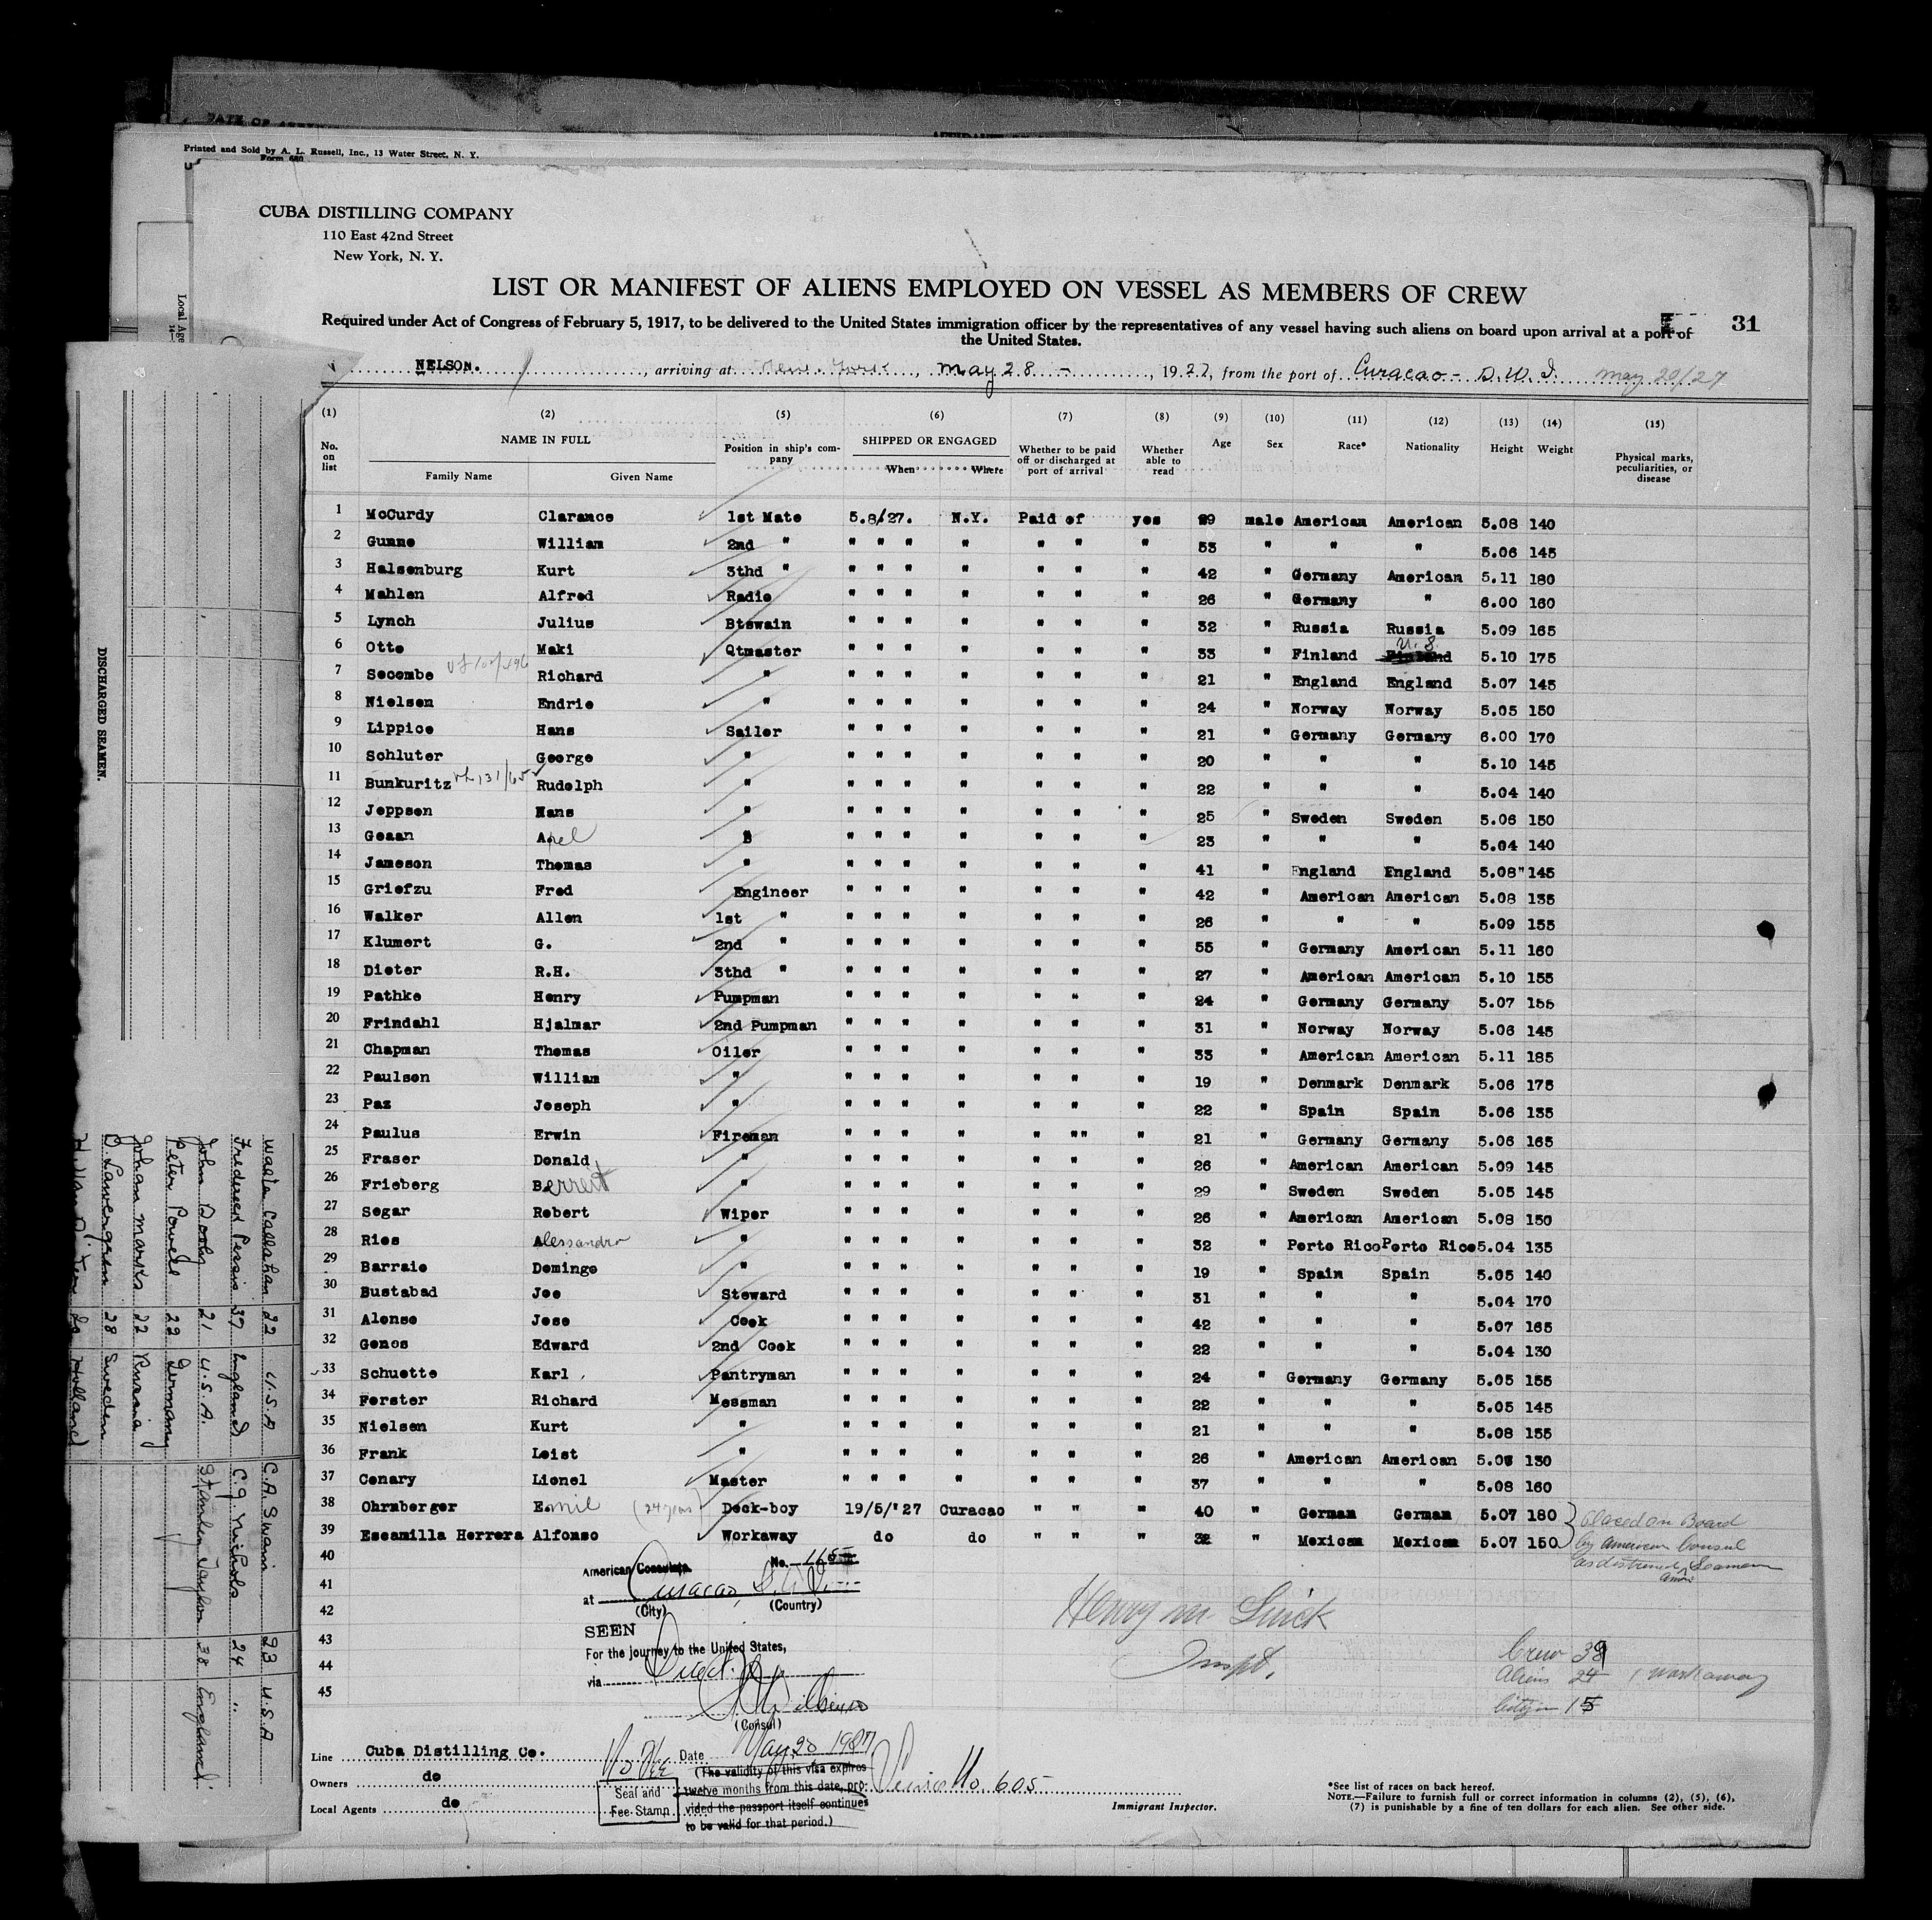 DATE OF
Printed and Sold by A. L. Russell, Inc., 13 Water Street, N. Y.
Form 680
CUBA DISTILLING COMPANY
110 East 42nd Street
New York, N. Y.
LIST OR MANIFEST OF ALIENS EMPLOYED ON VESSEL AS MEMBERS OF CREW
Required under Act of Congress of February 5, 1917, to be delivered to the United States immigration officer by the representatives of any vessel having such aliens on board upon arrival at a port of
the United States.
31
NELSON. , arriving at New York , May 28 - , 1927, from the port of Curacao - D.W.I. May 20/27
(1) (2) (5) (6) (7) (8) (9) (10) (11) (12) (13) (14) (15)
No. on list NAME IN FULL Family Name Given Name Position in ship's company SHIPPED OR ENGAGED When Where Whether to be paid off or discharged at port of arrival Whether able to read Age Sex Race* Nationality Height Weight Physical marks, peculiarities, or disease
1 McCurdy Clarance 1st Mate 5.8/27. N.Y. Paid of yes 29 male American American 5.08 140
2 Gunne William 2nd " " " " " " " " 53 " " " 5.06 145
3 Halsenburg Kurt 3thd " " " " " " " " 42 " Germany American 5.11 180
4 Mahlen Alfred Radio " " " " " " " 26 " Germany " 6.00 160
5 Lynch Julius Btswain " " " " " " " 32 " Russia Russia 5.09 165
6 Otto Maki Qtmaster " " " " " " " 33 " Finland Finland U.S. 5.10 175
7 Secombe Richard " " " " " " " " 21 " England England 5.07 145
8 Nielsen Endrie " " " " " " " " 24 " Norway Norway 5.05 150
9 Lippice Hans Sailer " " " " " " " 21 " Germany Germany 6.00 170
10 Schluter George " " " " " " " " 20 " " " 5.10 145
11 Bunkuritz Rudolph " " " " " " " " 22 " " " 5.04 140
12 Jeppsen Hans " " " " " " " " 25 " Sweden Sweden 5.06 150
13 Geaan Apel " " " " " " " 23 " " " 5.04 140
14 Jameson Thomas " " " " " " " " 41 " England England 5.08" 145
15 Griefzu Fred Engineer " " " " " " " 42 " American American 5.08 135
16 Walker Allen 1st " " " " " " " " 26 " " " 5.09 155
17 Klumert G. 2nd " " " " " " " " 55 " Germany American 5.11 160
18 Dieter R.H. 3thd " " " " " " " " 27 " American American 5.10 155
19 Pathke Henry Pumpman " " " " " " " 24 " Germany Germany 5.07 155
20 Frindahl Hjalmar 2nd Pumpman " " " " " " " 31 " Norway Norway 5.06 145
21 Chapman Thomas Oiler " " " " " " " 33 " American American 5.11 185
22 Paulsen William " " " " " " " " 19 " Denmark Denmark 5.06 175
23 Paz Joseph " " " " " " " " 22 " Spain Spain 5.06 135
24 Paulus Erwin Fireman " " " " " "" " 21 " Germany Germany 5.06 165
25 Fraser Donald " " " " " " " " 26 " American American 5.09 145
26 Frieberg Berrent " " " " " " " " 29 " Sweden Sweden 5.05 145
27 Segar Robert Wiper " " " " " " " 26 " American American 5.08 150
28 Rios Alessandro " " " " " " " " 32 " Porto Rico Porto Rico 5.04 135
29 Barraio Domingo " " " " " " " " 19 " Spain Spain 5.05 140
30 Bustabad Joe Steward " " " " " " " 31 " " " 5.04 170
31 Alonso Jose Cook " " " " " " " 42 " " " 5.07 165
32 Genos Edward 2nd Cook " " " " " " " 22 " " " 5.04 130
33 Schuette Karl Pantryman " " " " " " " 24 " Germany Germany 5.05 155
34 Forster Richard Messman " " " " " " " 22 " " " 5.05 145
35 Nielsen Kurt " " " " " " " " 21 " " " 5.08 155
36 Frank Leist " " " " " " " " 26 " American American 5.08 130
37 Conary Lionel Master " " " " " " " 37 " " " 5.08 160
38 Ohrnberger Emil (24 years) Deck-boy 19/5/'27 Curacao " " " 40 " German German 5.07 180
39 Escamilla Herrera Alfonso Workaway do do " " " 32 " Mexican Mexican 5.07 150
Placed on Board
by American Consul
as distressed Amer. Seamen
40
41
42
43
44
45
American Consulate No. 1165
at Curacao, D.W.I.
(City) (Country)
SEEN
For the journey to the United States,
via Direct
(Consul)
Date May 20 1927
(The validity of this visa expires
twelve months from this date, pro-
vided the passport itself continues
to be valid for that period.)
No Fee
Seal and
Fee Stamp
Service No. 605
Henry M. Linck
Inspt.
Crew 39
Aliens 24 1 workaway
Citizen 15
Line Cuba Distilling Co.
Owners do
Local Agents do
Immigrant Inspector.
*See list of races on back hereof.
NOTE.—Failure to furnish full or correct information in columns (2), (5), (6),
(7) is punishable by a fine of ten dollars for each alien. See other side.
Local Age
DISCHARGED SEAMEN.
Walter Callahan 22 U.S.A C.A. Swain 23 U.S.A
Frederek Pessis 37 England C.J. Nichols 24 "
John Dooly 21 U.S.A. Stanley Taylor 38 England
Peter Powel 22 Germany
Johan Marks 22 Russia
Lawengren 28 Sweden
Holland